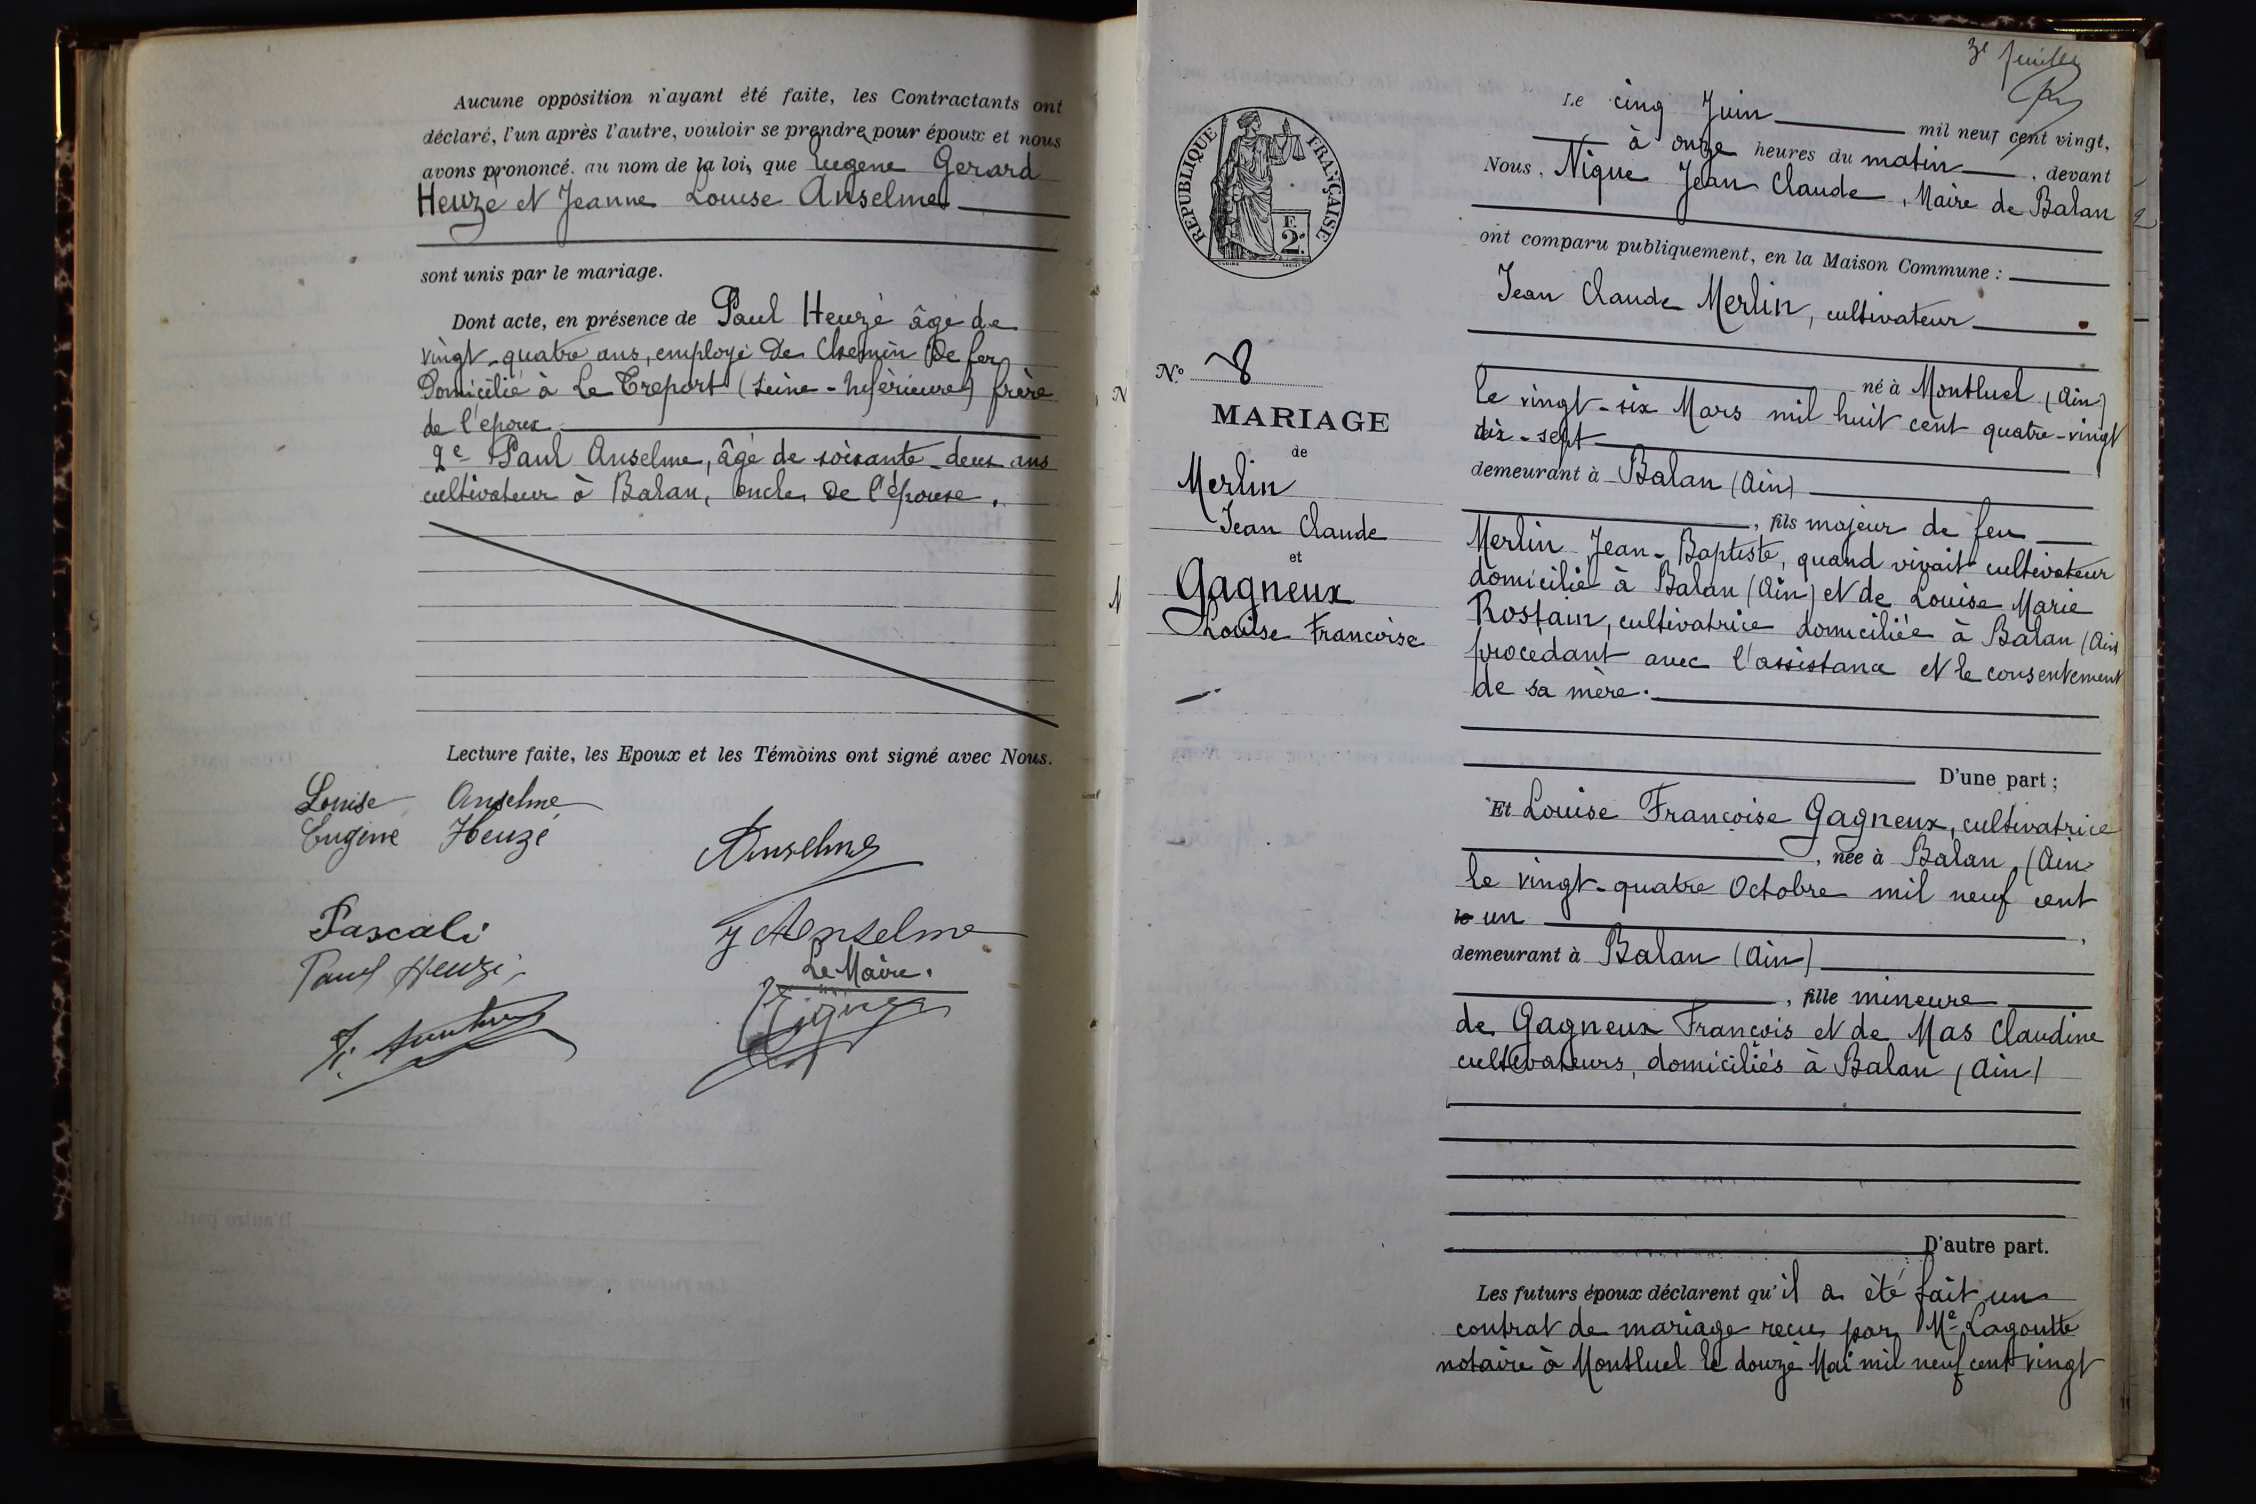 Aucune opposition n'ayant été faite, les Contractants ont
déclaré, l'un après l'autre, vouloir se prendre pour époux et nous
avons prononcé. au nom de la loi, que Eugene Gerard
Heuzé et Jeanne Louise Anselme
sont unis par le mariage.
Dont acte, en présence de Paul Heuzé âgé de
vingt-quatre ans, employé de Chemin de fer
Domicilié à Le Tréport (Seine-Inférieure) frère
de l'époux
2e Paul Anselme, âgé de soixante-deux ans
cultivateur à Balan, oncle, de l'épouse.
Lecture faite, les Epoux et les Témoins ont signé avec Nous.
Louise Anselme
Eugène Heuzé
Anselme
Pascali
J Anselme
Paul Heuzé
Le Maire.
3e feuillet
REPUBLIQUE FRANÇAISE
F.
2
N° 8
MARIAGE
de
Merlin
Jean Claude
et
Gagneux
Louise Francoise
Le cinq Juin mil neuf cent vingt,
à onze heures du matin, devant
Nous, Nique Jean Claude, Maire de Balan
ont comparu publiquement, en la Maison Commune :
Jean Claude Merlin, cultivateur
né à Montluel (Ain)
le vingt-six Mars mil huit cent quatre-vingt
dix-sept
demeurant à Balan (Ain)
, fils majeur de feu
Merlin Jean-Baptiste, quand vivait cultivateur
domicilié à Balan (Ain) et de Louise Marie
Rostain, cultivatrice domiciliée à Balan (Ain
procédant avec l'assistance et le consentement
de sa mère.
D'une part ;
Et Louise Françoise Gagneux, cultivatrice
, née à Balan (Ain
le vingt-quatre Octobre mil neuf cent
un
demeurant à Balan (Ain)
, fille mineure
de Gagneux François et de Mas Claudine
cultivateurs, domiciliés à Balan (Ain)
D'autre part.
Les futurs époux déclarent qu'il a été fait un
contrat de mariage recu par Me Lagoutte
notaire à Montluel le douze Mai mil neuf cent vingt